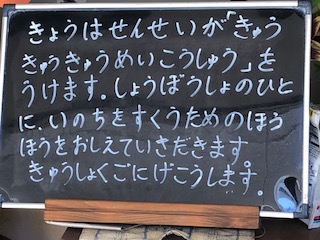 きょうはせんせいが「きゅう
きゅうきゅうめいこうしゅう」を
うけます。しょうぼうしょのひと
に、いのちをすくうためのほう
ほうをおしえていただきます
きゅうしょくごにげこうします。